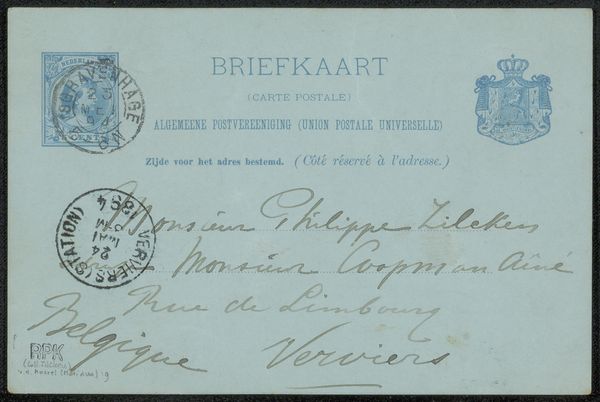 NEDERLAND
CENTS
'S GRAVENHAGE
23
MEI
94
BRIEFKAART
(CARTE POSTALE)
ALGEMEENE POSTVEREENIGING (UNION POSTALE UNIVERSELLE)
Zijde voor het adres bestemd. (Côté réservé à l'adresse.)
VERVIERS (STATION)
24
MAI
1894
Monsieur Philippe Zilcken
Monsieur Coopman Aîné
Rue de Limbourg
Belgique Verviers
RPK
(Coll. Zilcken)